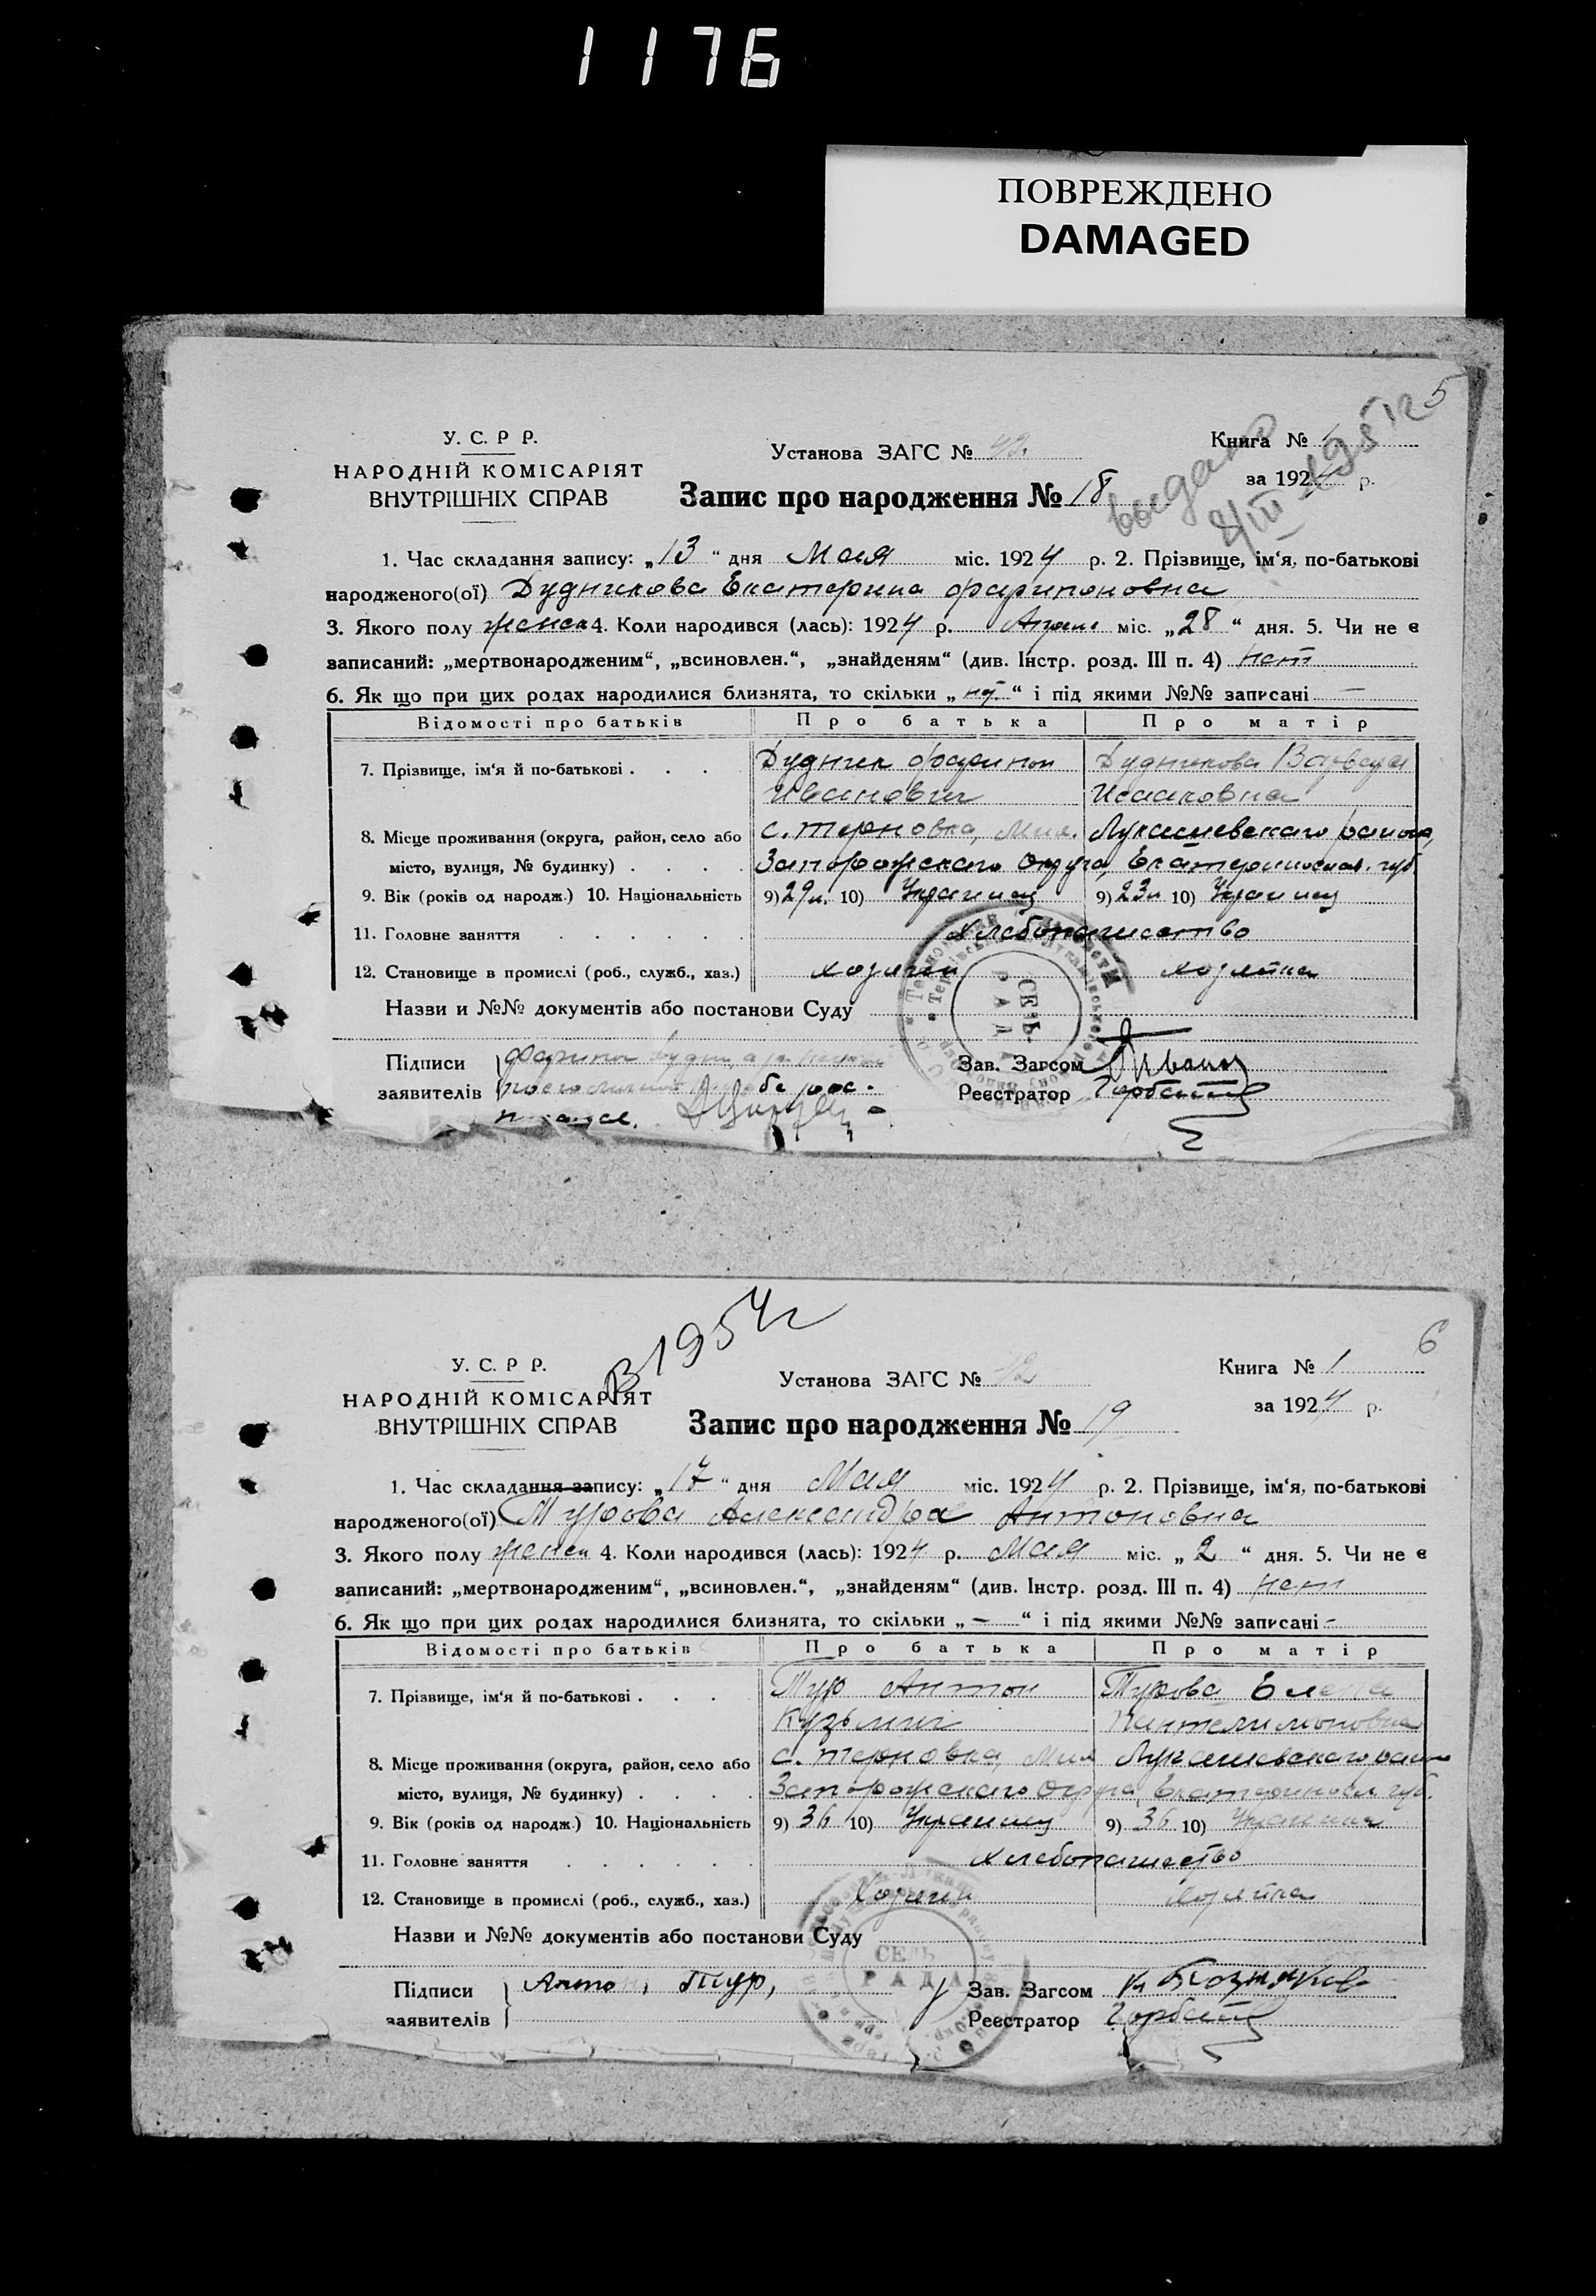 1176
ПОВРЕЖДЕНО
DAMAGED
5
У. С. Р Р.
НАРОДНІЙ КОМІСАРІЯТ
ВНУТРІШНІХ СПРАВ
Установа ЗАГС № 42.
Книга № 1
за 1924 р.
Запис про народження № 18
выдано
1. Час складання запису: „13“ дня Мая міс. 1924 р. 2. Прізвище, ім‘я, по-батькові
народженого(ої) Дудникова Екатерина фарипоновна
3. Якого полу женск 4. Коли народився (лась): 1924 р. Апреля міс. „28“ дня. 5. Чи не є
записаний: „мертвонародженим“, „всиновлен.“, „знайденям“ (див. Інстр. розд. III п. 4) нет
6. Як що при цих родах народилися близнята, то скільки „нет“ і під якими №№ записані —
Відомості про батьків Про батька Про матір
7. Прізвище, ім‘я й по-батькові . . . Дудник Иванович Дудникова Варвара Исааковна
8. Місце проживання (округа, район, село або с. терновка, Лукашевскаго района,
місто, вулиця, № будинку) . . . . Запорожскаго округа, Екатеринослав. губ.
9. Вік (років од народж.) 10. Національність 9) 29 л. 10) Украинец 9) 23 л 10) Украинец
11. Головне заняття . . . . . . Хлебопашество
12. Становище в промислі (роб., служб., хаз.) хозяин хозяйка
Назви и №№ документів або постанови Суду
СЕЛЬ-
РАДА
Підписи
заявителів
Зав. Загсом
Реєстратор Горбат
6
В 1954 г
У. С. Р Р.
НАРОДНІЙ КОМІСАРІЯТ
ВНУТРІШНІХ СПРАВ
Установа ЗАГС № 42
Книга № 1
за 1924 р.
Запис про народження № 19
1. Час складання запису: „17“ дня Мая міс. 1924 р. 2. Прізвище, ім‘я, по-батькові
народженого(ої) Турова Александра Антоновна
3. Якого полу женск 4. Коли народився (лась): 1924 р. Мая міс. „2“ дня. 5. Чи не є
записаний: „мертвонародженим“, „всиновлен.“, „знайденям“ (див. Інстр. розд. III п. 4) нет
6. Як що при цих родах народилися близнята, то скільки „—“ і під якими №№ записані —
Відомості про батьків Про батька Про матір
7. Прізвище, ім‘я й по-батькові . . . Тур Антон Кузьмич Турова Елена Пантелимоновна
8. Місце проживання (округа, район, село або с. терновка, Лукашевскаго района
місто, вулиця, № будинку) . . . . Запорожскаго Округа, Екатеринослав губ.
9. Вік (років од народж.) 10. Національність 9) 36 10) Украинец 9) 36 10) Украинка
11. Головне заняття . . . . . . Хлебопашество
12. Становище в промислі (роб., служб., хаз.) Хозяин Хозяйка
Назви и №№ документів або постанови Суду
СЕЛЬ
РАДА
Підписи Антон, Тур,
заявителів
Зав. Загсом
Реєстратор Горбат